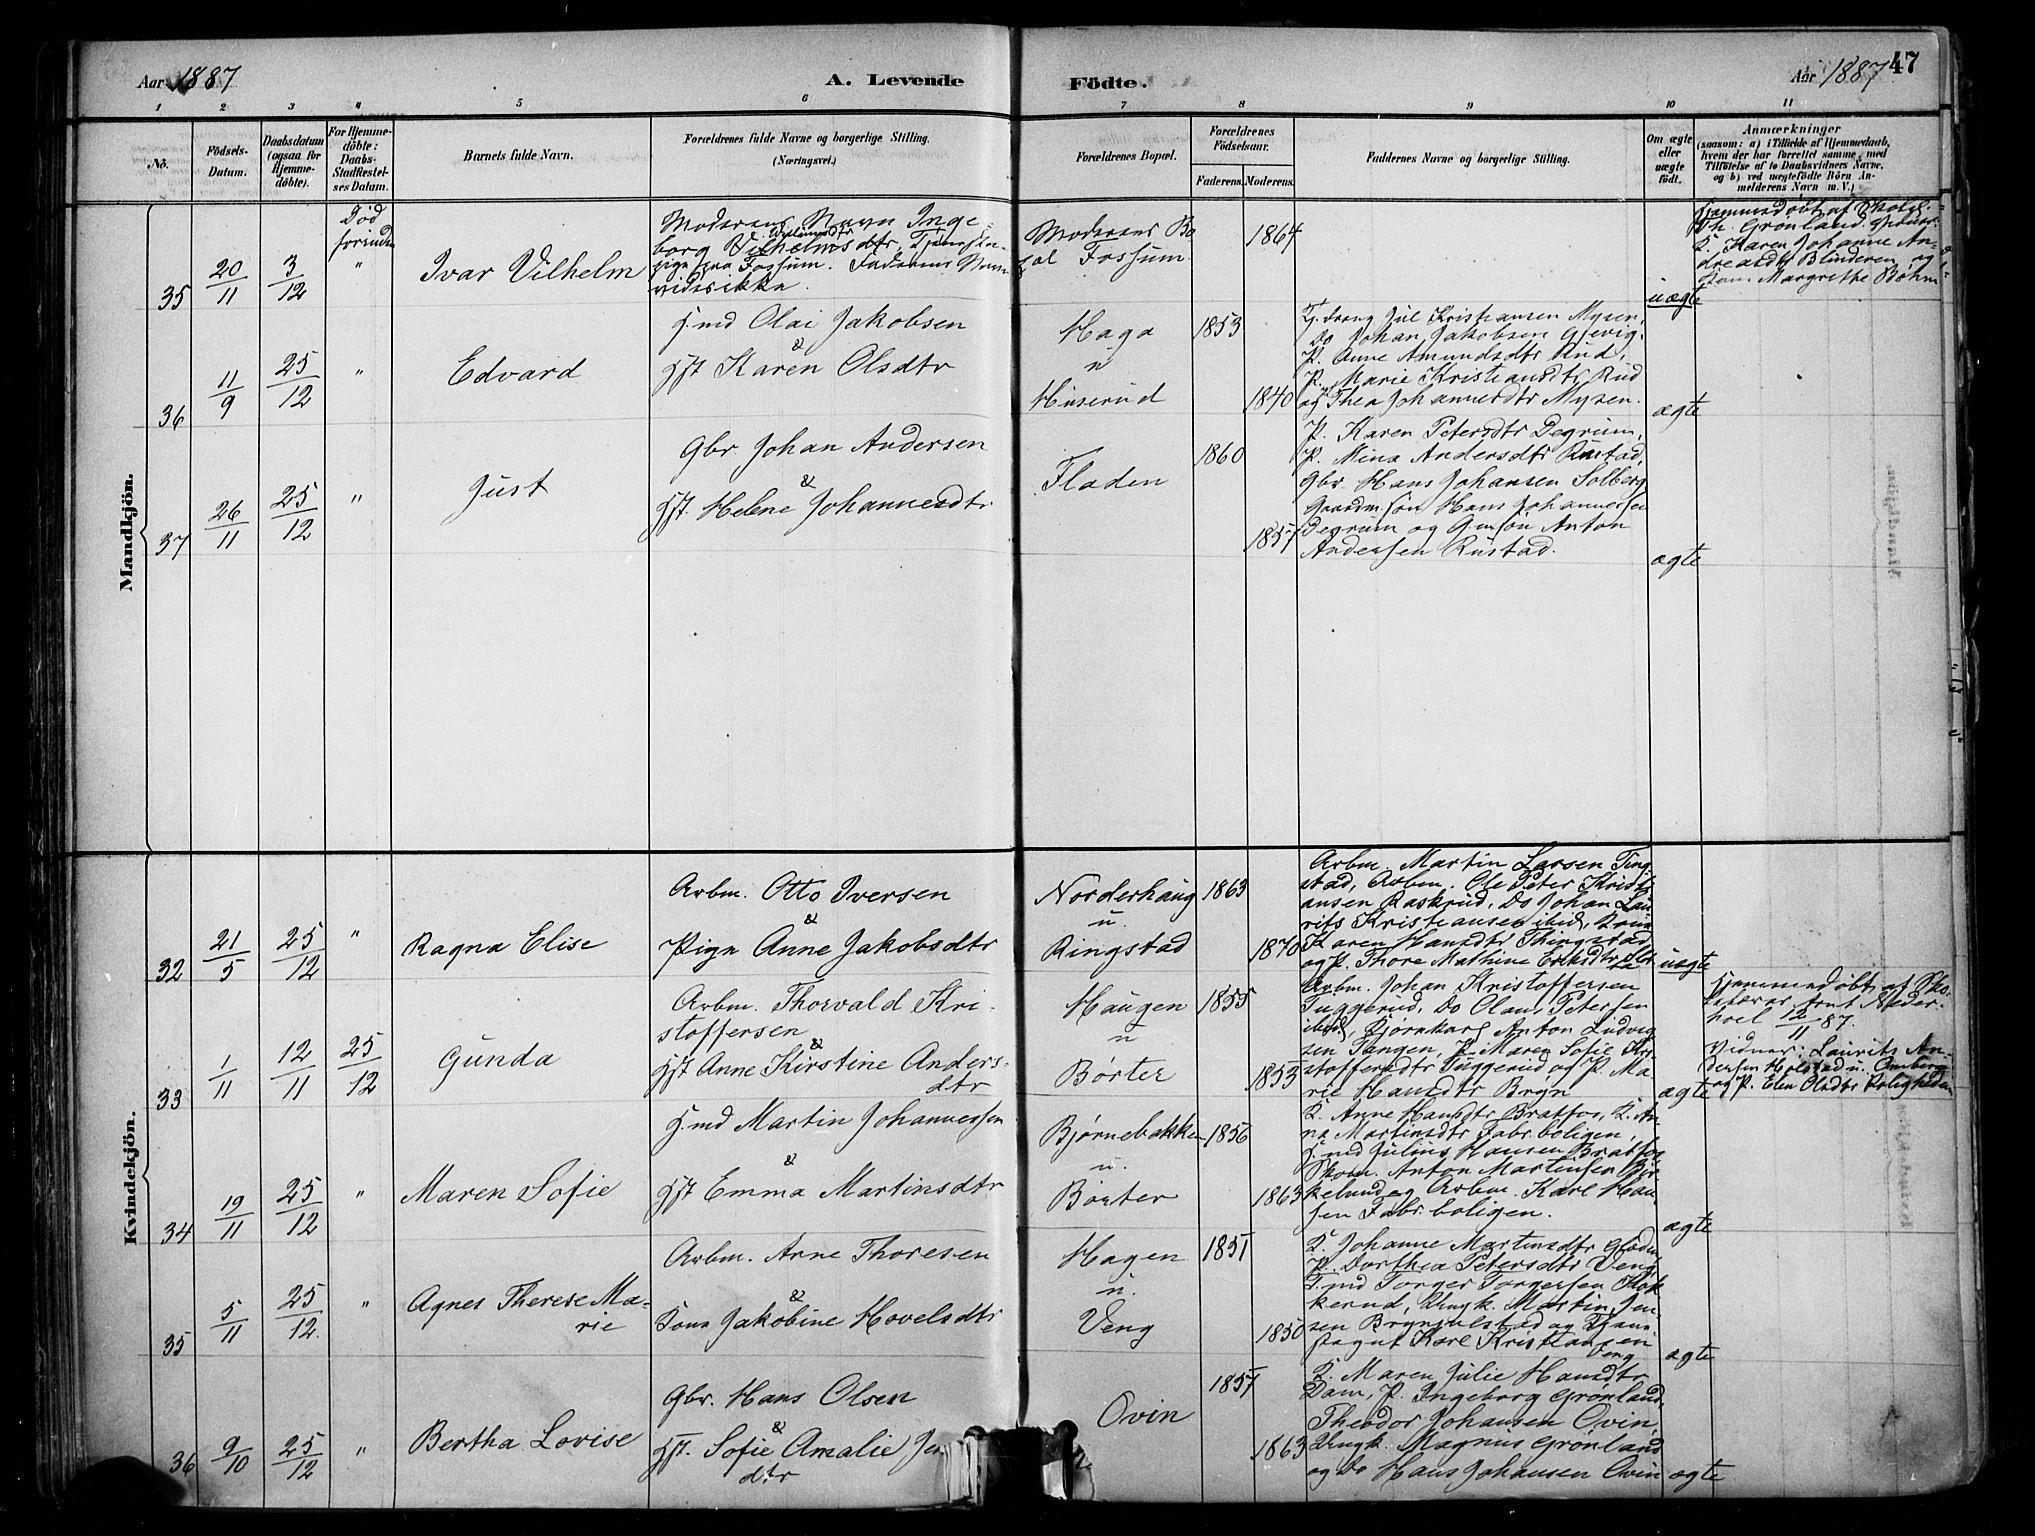 Aar 1887
A. Levende
Födte.
Aar 1887
47
1 2 3 " 5 6 7 8 9 10 11
No.
Födsels-
Datum.
Daabsdatum
(ogsaa for
Hjemme-
döbte).
For Hjemme-
döbte:
Daabs-
Stadfæstel-
ses Datum.
Barnets fulde Navn.
Forældrenes fulde Navne og borgerlige Stilling.
(Næringsvei.)
Forældrenes Bopæl.
Forældrenes
Födselsaar.
Faderens. Moderens.
Faddernes Navne og borgerlige Stilling.
Om ægte
eller
uægte
födt.
Anmærkninger
(saasom: a) i Tilfælde af Hjemmedaab,
hvem der har forrettet samme, med
Tilföielse af to Daabsvidners Navne,
og b) ved uægtefödte Börn An-
melderens Navn m. V.)
Mandkjön.
35
20/11
3/12
Död
forinden
"
Ivar Vilhelm
Moderens Navn Inge
borg Vilhelmsdtr, Tjeneste-
pige paa Fossum. Faderens Navn
vides ikke.
Moderens Bo
pæl Fossum.
1864
uægte
Hjemmedøbt af
Th. Grønland.
K. Karen Johanne An-
dreasdtr Blinderen og
Margrethe Bøhm
36
11/9
25/12
"
Edvard
H.md Olai Jakobsen
&
Hst Karen Olsdtr
Haga
u
Huserud
1853
1840
Jul Kristiansen Mysen,
Do Johan Jakobsen Gjevig,
P. Anne Amundsdtr Rud,
P. Marie Kristiansdtr Rud
og Thea Johannesdtr Mysen.
ægte
37
26/11
25/12
"
Just
Gbr Johan Andersen
&
Hst. Helene Johannesdtr
Fladen
1860
1857
P. Karen Petersdtr Degrum,
P. Mina Andersdtr Rustad,
Gbr. Hans Johansen Solberg
Gaardm.søn Hans Johannessen
Degrum og Gmsøn Anton
Andersen Rustad.
ægte
Kvindekjön.
32
21/5
25/12
"
Ragna Elise
Arbm. Otto Iversen
&
Pige Anne Jakobsdtr
Norderhaug
u.
Ringstad
1863
1870
Arbm. Martin Larsen Ting
stad, Arbm. Ole Peter Kristi
ansen Raskrud, Do Johan Lau
rits Kristiansen ibid, Kone
Karen Hansdtr Thingstad
og P. Thore Mathine Eriksdtr
uægte
33
1/11
12/11
25/12
Gunda
Arbm. Thorvald Kri-
stoffersen
&
Hst Anne Kirstine Anders-
dtr
Haugen
u
Børter
1855
1853
Arbm. Johan Kristoffersen
Tuggerud, Do Olaus Petersen
ibid, Bjørnkarl Anton Ludvig
sen Tangen, P. Maren Sofie Kri-
stoffersdtr Tuggerud og P. Ma
rie Hansdtr Bryn
ægte
Hjemmedøbt af Sko-
lelærer Arnt Meder-
hoel 12/11 87.
Vidner: Laurits An-
dersen Holstad u. Omberg
og P. Elen Olsdtr Roligheden
34
19/11
25/12
"
Maren Sofie
H.md Martin Johannessen
&
Hst Emma Martinsdtr
Bjørnebakken
u.
Børter
1856
1863
K. Anne Hansdtr Bratfos, K. An-
na Martinsdtr Fabr.boligen,
H.md Julius Hansen Bratfos
Skom. Anton Martinsen Bir
kelund og Arbm. Karl Han-
sen Fabr.boligen.
ægte
35
5/11
25/12
"
Agnes Therese Ma-
rie
Arbm. Arne Thoresen
&
Kone Jakobine Hovelsdtr
Hagen
u.
Veng
1851
1850
K. Johanne Martinsdtr
P. Dorthea Petersdtr Veng
H.md Torger Torgersen Kok
kerud, Ungk. Martin Jen-
sen Brynjulstad og Tjene
stegut Karl Kristiansen
Veng
ægte
36
9/10
25/12
"
Bertha Lovise
Gbr. Hans Olsen
&
Hst. Sofie Amalie Jen
dtr
Ovin
1857
1863
K. Maren Julie Hansdtr
Dam, P. Ingeborg Grønland
Theodor Johansen Ovin
Ungk. Magnus Grønland
og Do Hans Johansen Ovin
ægte